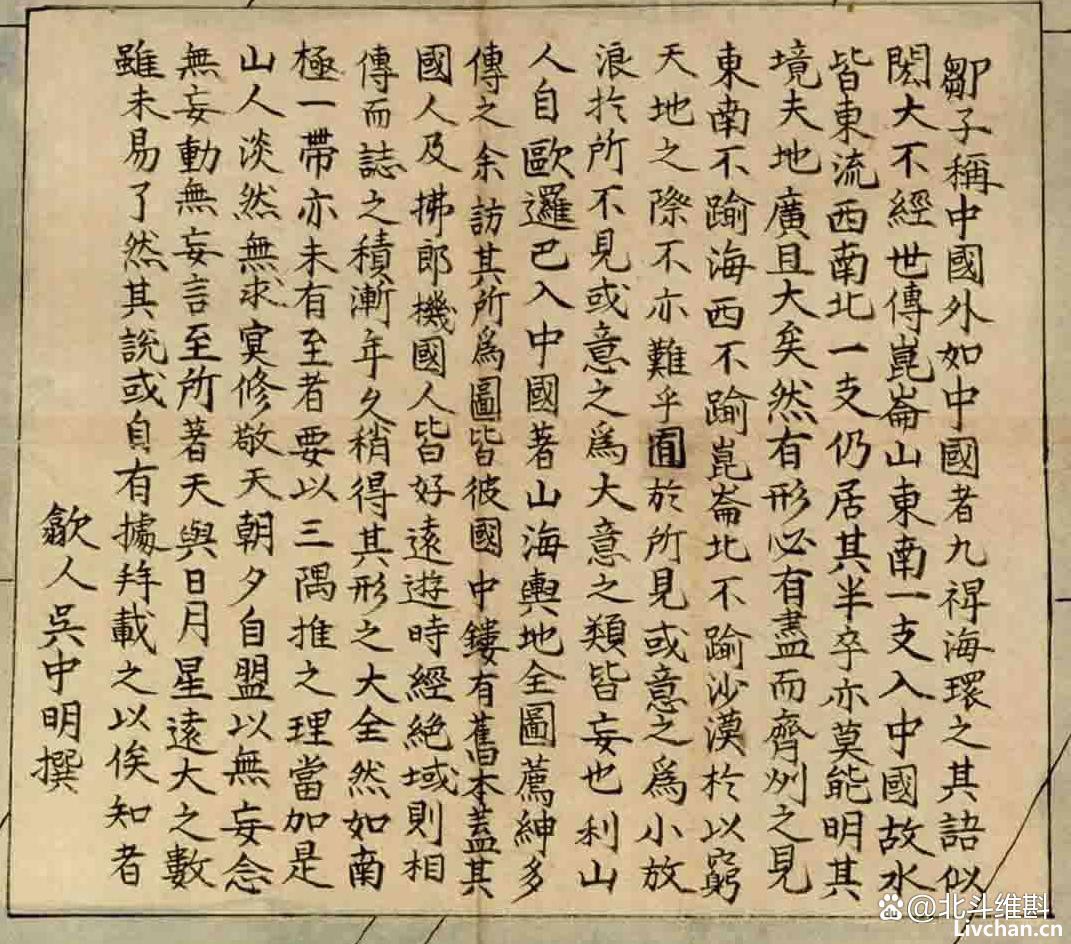 鄒子稱中國外如中國者九裨海環之其語似
閎大不經世傳崑崙山東南一支入中國故水
皆東流西南北一支仍居其半卒亦莫能明其
境夫地廣且大矣然有形必有盡而齊州之見
東南不踰海西不踰崑崙北不踰沙漠於以窮
天地之際不亦難乎囿於所見或意之為小放
浪於所不見或意之為大意之類皆妄也利山
人自歐邏巴入中國著山海輿地全圖薦紳多
傳之余訪其所為圖皆彼國中鏤有舊本蓋其
國人及拂郎機國人皆好遠遊時經絶域則相
傳而誌之積漸年久稍得其形之大全然如南
極一帶亦未有至者要以三隅推之理當如是
山人淡然無求冥修敬天朝夕自盟以無妄念
無妄動無妄言至所著天與日月星遠大之數
雖未易了然其説或自有據并載之以俟知者
歙人吳中明撰
@北斗維斟
Livchan.cn